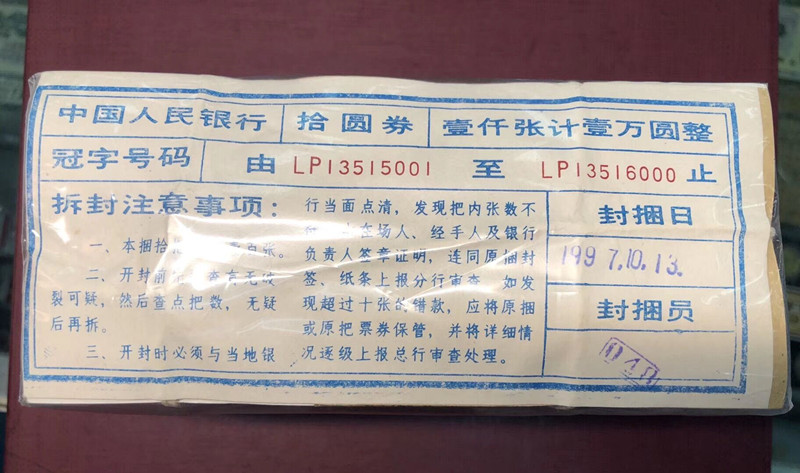 中国人民银行 拾圆券 壹仟张计壹万圆整
冠字号码 由 LP13515001 至 LP13516000 止
拆封注意事项：
一、本捆拾 百张。
二、开封前 查有无破
裂可疑，然后查点把数，无疑
后再拆。
三、开封时必须与当地银
行当面点清，发现把内张数不
在场人、经手人及银行
负责人签章证明，连同原捆封
签、纸条上报分行审查，如发
现超过十张的错款，应将原捆
或原把票券保管，并将详细情
况逐级上报总行审查处理。
封捆日
1997.10.13.
封捆员
048